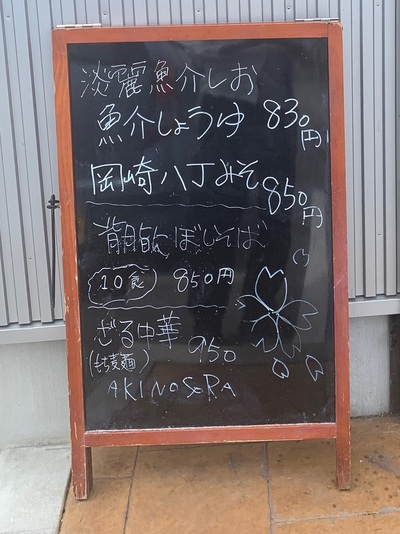 淡麗魚介しお
魚介しょうゆ 830円
岡崎八丁みそ 850円
背脂にぼしそば
10食 850円
ざる中華 950
(もち麦麺)
AKINOSORA